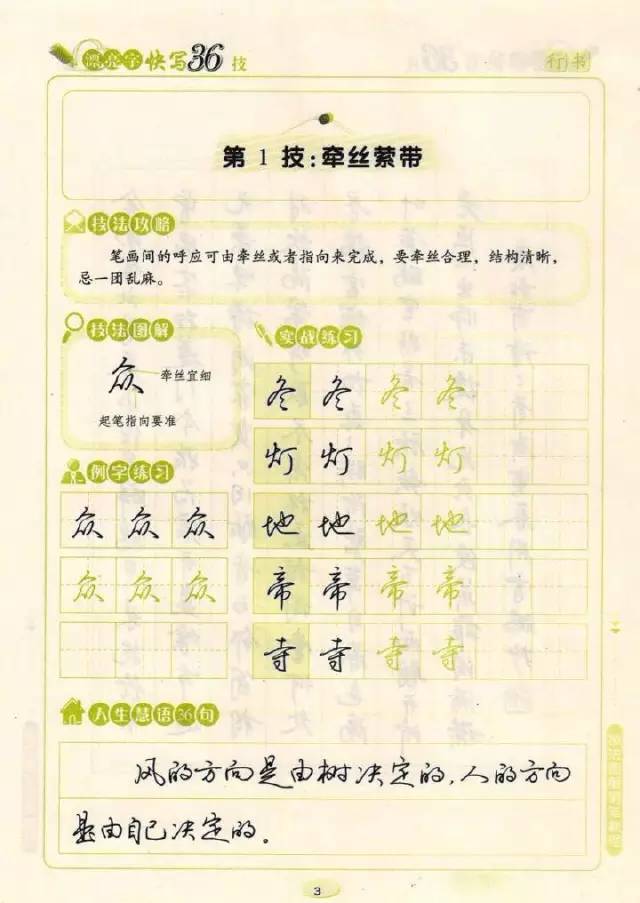 漂亮字快写36技
行书
第1技:牵丝萦带
技法攻略
笔画间的呼应可由牵丝或者指向来完成，要牵丝合理，结构清晰，
忌一团乱麻。
技法图解
众
牵丝宜细
起笔指向要准
例字练习
众众众
众众众
实战练习
冬冬冬冬
灯灯灯灯
地地地地
帝帝帝帝
寺寺寺寺
人生慧语36句
风的方向是由树决定的,人的方向
是由自己决定的。
3